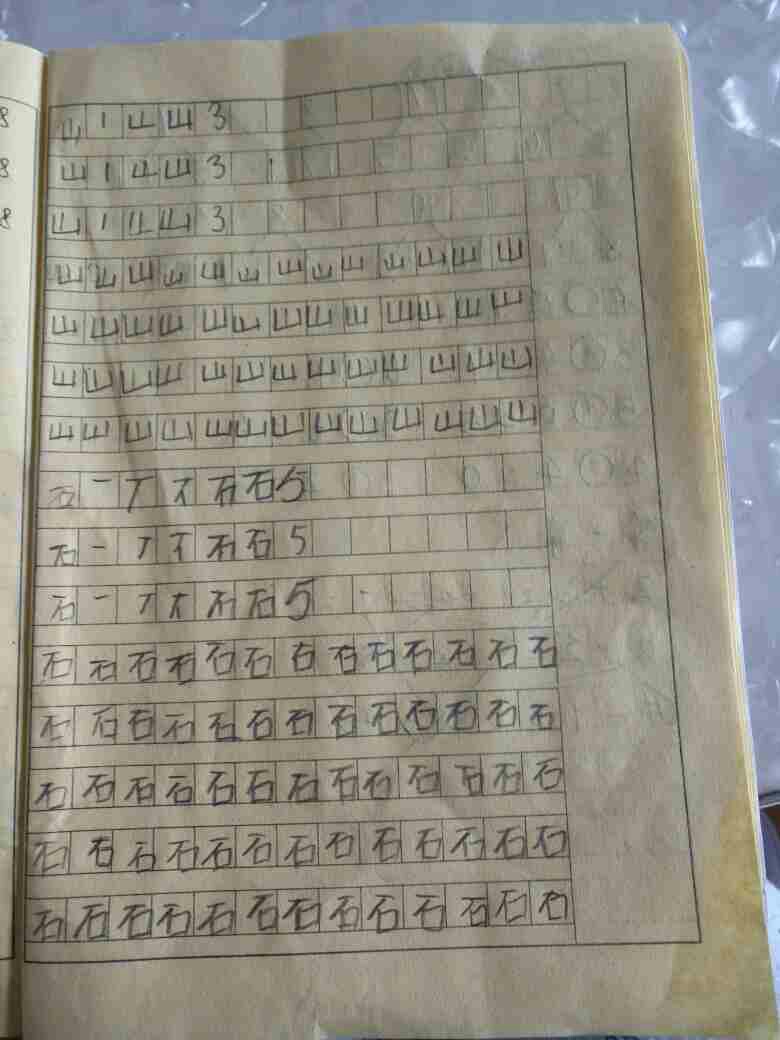 山 丨 山 山 3
山 丨 山 山 3
山 丨 山 山 3
山 山 山 山 山 山 山 山 山 山 山 山 山
山 山 山 山 山 山 山 山 山 山 山 山 山
山 山 山 山 山 山 山 山 山 山 山 山 山
山 山 山 山 山 山 山 山 山 山 山 山 山
石 一 丆 不 石 石 5
石 一 丆 不 石 石 5
石 一 丆 不 石 石 5
石 石 石 石 石 石 石 石 石 石 石 石 石
石 石 石 石 石 石 石 石 石 石 石 石 石
石 石 石 石 石 石 石 石 石 石 石 石 石
石 石 石 石 石 石 石 石 石 石 石 石 石
石 石 石 石 石 石 石 石 石 石 石 石 石